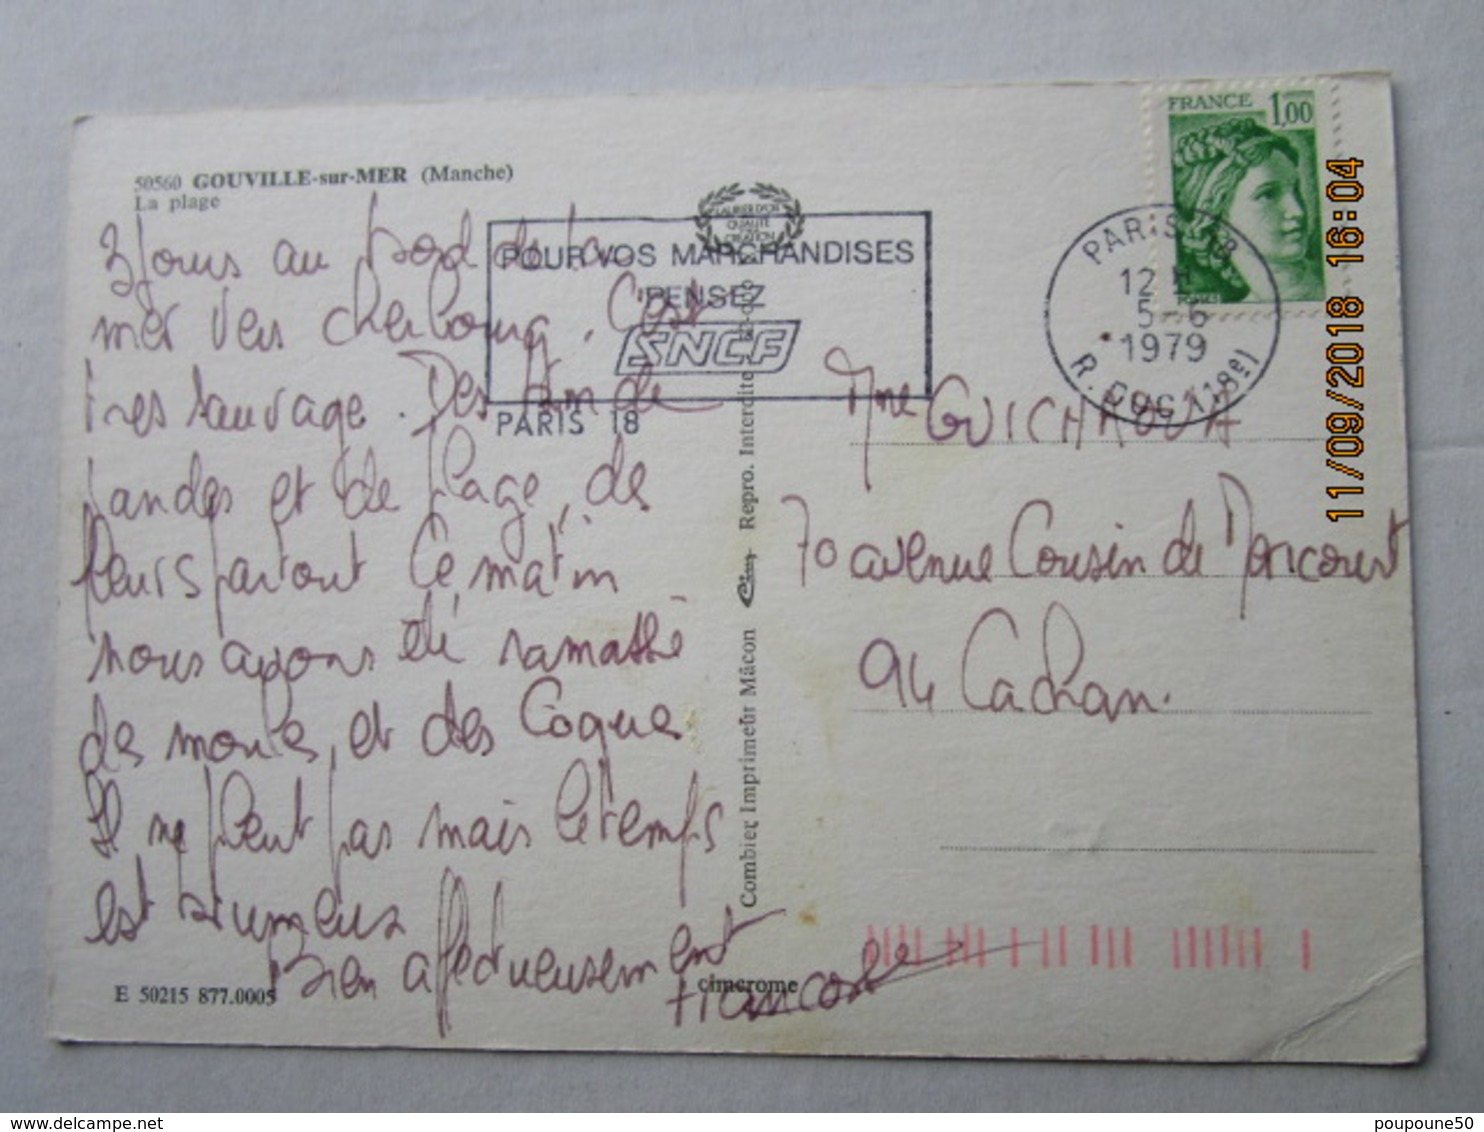 50560 GOUVILLE-sur-MER (Manche)
La plage
3 Jours au bord de la
mer vers cherbourg. C'est
très sauvage. Des
landes et de plage, des
fleurs partout Ce matin
nous avons été ramassé
des moules, et des Coques
Il ne pleut pas mais le temps
est brumeux
Bien affectueusement
Francoise
E 50215 877.0005
LAURIER D'OR
QUALITÉ
CRÉATION
POUR VOS MARCHANDISES
PENSEZ
SNCF
PARIS 18
Combier Imprimeur Mâcon Cim Repro. Interdite
cimcrome
FRANCE 1,00
PARIS 18
12 H
5-6
1979
R. BOUCRY (18e)
Mme GUICHAOUA
70 avenue Cousin de Mericourt
94 Cachan.
11/09/2018 16:04
poupoune50